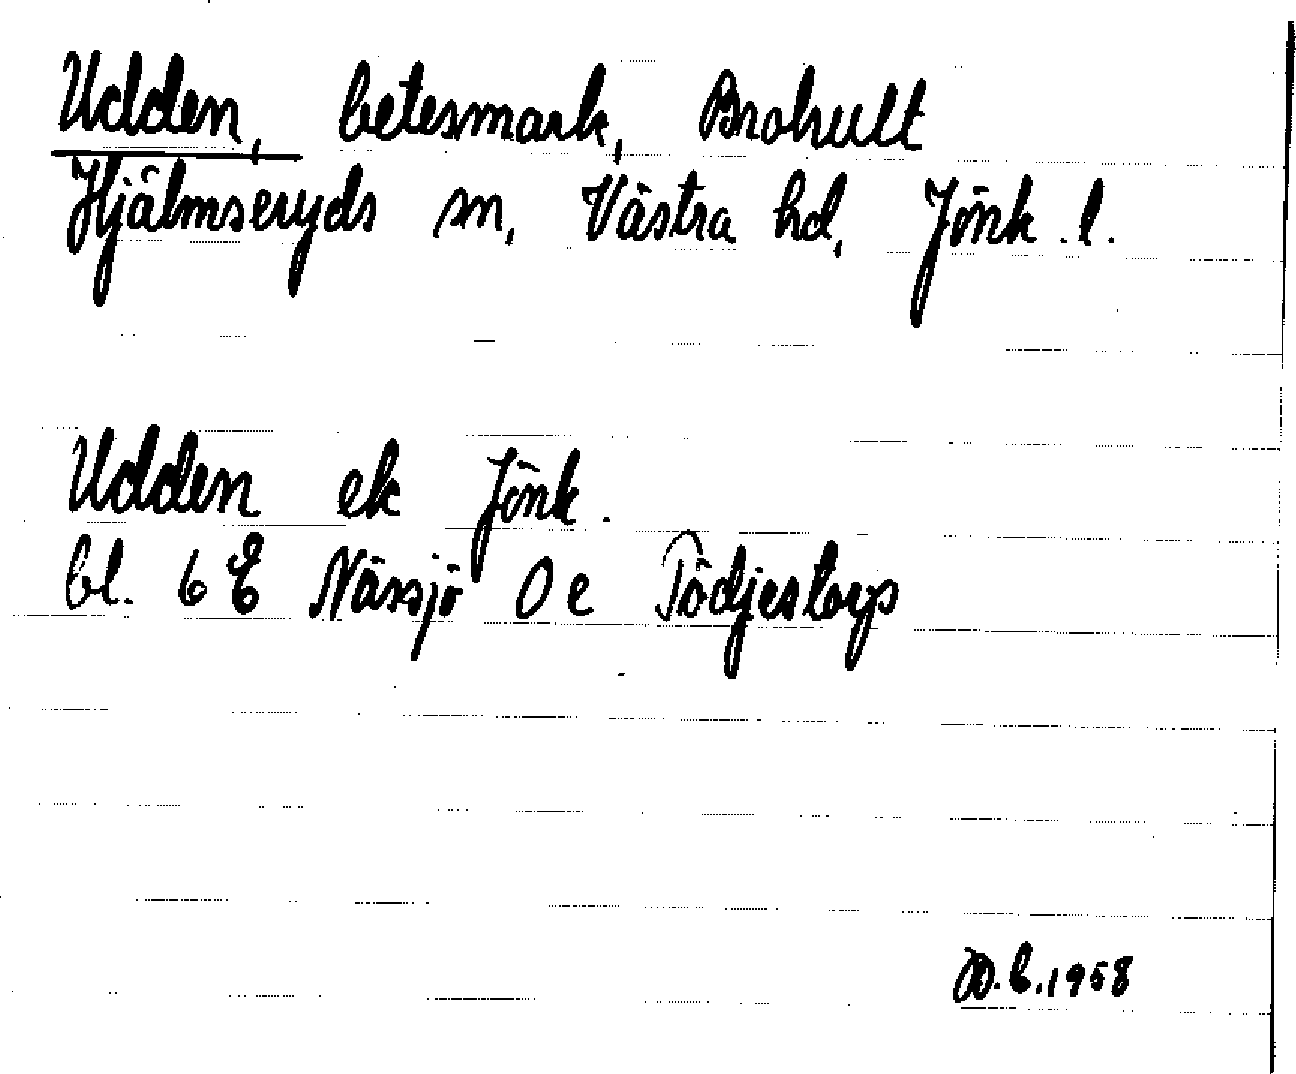 Udden, betesmark, Brohult
Hjälmseryds sn, Västra hd, Jönk. l.
Udden ek Jönk.
bl. 6 E Nässjö 0 e Tödjestorp
1958